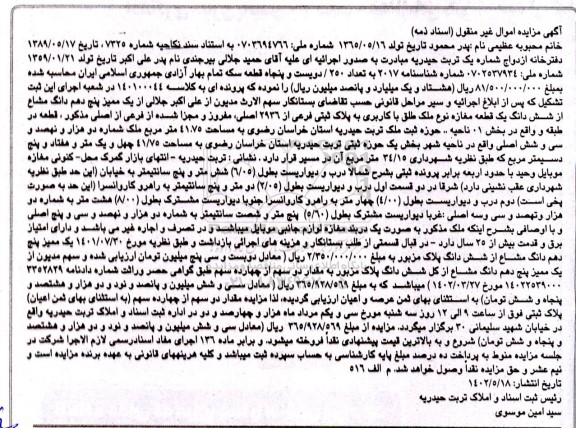 آگهی مزایده اموال غیر منقول (اسناد ذمه)
خانم محبوبه عظیمی نام پدر: محمود تاریخ تولد ۱۳۶۵/۰۵/۱۶ شماره ملی: ۰۷۰۳۶۹۴۷۶۶ به استناد سند نکاحیه شماره ۷۳۲۵ ، تاریخ ۱۳۸۹/۰۵/۱۷
دفترخانه ازدواج شماره یک تربت حیدریه مبادرت به صدور اجرائیه ای علیه آقای حمید جلالی بیرجندی نام پدر علی اکبر تاریخ تولد ۱۳۵۹/۰۱/۲۱
شماره ملی: ۰۷۰۲۵۳۷۹۳۴ شماره شناسنامه ۲۰۱۷ به تعداد ۲۵۰ / دویست و پنجاه قطعه سکه تمام بهار آزادی جمهوری اسلامی ایران محاسبه شده
بمبلغ ۸۱/۵۰۰/۰۰۰/۰۰۰ ریال (هشتاد و یک میلیارد و پانصد میلیون ریال) را نموده که پرونده ای به کلاسه ۱۴۰۱۰۰۰۴۴ در شعبه اجرای این ثبت
تشکیل که پس از ابلاغ اجرائیه و سیر مراحل قانونی حسب تقاضای بستانکار سهم الارث مدیون از علی اکبر جلالی از یک ممیز پنج دهم دانگ مشاع
از شش دانگ یک قطعه مغازه نوع ملک طلق با کاربری به پلاک ثبتی فرعی از ۲۹۳۶ اصلی، مفروز و مجزا شده از فرعی از اصلی مذکور ، قطعه در
طبقه و واقع در بخش ۰۱ ناحیه .. حوزه ثبت ملک تربت حیدریه استان خراسان رضوی به مساحت ۴۱/۷۵ متر مربع ملک شماره دو هزار و نهصد و
سی و شش اصلی واقع در ناحیه شهر بخش یک حوزه ثبتی تربت حیدریه استان خراسان رضوی به مساحت ۴۱/۷۵ چهل و یک متر و هفتاد و پنج
دسیمتر مربع که طبق نظریه شهرداری ۳۴/۱۵ متر مربع آن در مسیر قرار دارد . نشانی : تربت حیدریه - انتهای بازار گمرک محل- کنونی مغازه
موبایل وحید با حدود اربعه برابر پرونده ثبتی بشرح شمالا درب و دیواریست بطول (۶/۰۵) شش متر و پنج سانتیمتر به خیابان (این حد طبق نظریه
شهرداری عقب نشینی دارد) شرقا در دو قسمت اول درب و دیواریست بطول (۲/۰۵) دو متر و پنج سانتیمتر به راهرو کاروانسرا (این حد به صورت
پخی است) دوم درب و دیواریست بطول (۴/۰۰) چهار متر به راهرو کاروانسرا جنوبا دیواریست مشترک بطول (۸/۰۰) هشت متر به شماره دو
هزار ونهصد و سی وسه اصلی :غربا دیواریست مشترک بطول (۵/۶۰) پنج متر و شصت سانتیمتر به شماره دو هزار و نهصد و سی و پنج اصلی
و با اوصافی بشرح اینکه ملک مذکور به صورت یک دربند مغازه لوازم جانبی موبایل میباشد و در تصرف و اجاره غیر می باشد و دارای امتیاز
برق و قدمت بیش از ۲۵ سال دارد - در قبال قسمتی از طلب بستانکار و هزینه های اجرائی بازداشت و طبق نظریه مورخ ۱۴۰۱/۰۷/۳۰ یک ممیز پنج
دهم دانگ مشاع از شش دانگ پلاک مزبور به مبلغ ۲/۳۵۰/۰۰۰/۰۰۰ ریال ( معادل دویست و سی پنج میلیون تومان ارزیابی شده و سهم مدیون از
یک ممیز پنج دهم دانگ مشاع از کل شش دانگ پلاک مزبور به مقدار دو سهم از چهارده سهم طبق گواهی حصر وراثت شماره دادنامه ۳۳۵۲۸۳۹
۱۴۰۲۲۵۳۹۰۰۰ مورخ ۱۴۰۲/۰۳/۲۷ ) میباشد که به مبلغ ۳۶۵/۹۲۸/۵۶۹ ریال (معادل سی و شش میلیون و پانصد و نود و دو هزار و هشتصد و
پنجاه و شش تومان) به استثنای بهای ثمن عرصه و اعیان ارزیابی گردیده، لذا مزایده مقدار دو سهم از چهارده سهم (به استثنای بهای ثمن اعیان)
پلاک ثبتی فوق از ساعت ۹ الی ۱۲ روز سه شنبه مورخ سی و یکم مرداد ماه هزار و چهارصد و دو در اداره ثبت اسناد و املاک تربت حیدریه واقع
در خیابان شهید سلیمانی ۳۰ برگزار میگردد. مزایده از مبلغ ۳۶۵/۹۲۸/۵۶۹ ریال (معادل سی و شش میلیون و پانصد و نود و دو هزار و هشتصد
و پنجاه و شش تومان) شروع و به بالاترین قیمت پیشنهادی نقداً فروخته میشود. و برابر ماده ۱۳۶ اجرای مفاد اسنادرسمی لازم الاجرا شرکت در
جلسه مزایده منوط به پرداخت ده درصد مبلغ پایه کارشناسی به حساب سپرده ثبت میباشد و کلیه هزینههای قانونی به عهده برنده مزایده است و
نیم عشر و حق مزایده نقداً وصول خواهد شد. م الف ۵۱۶
تاریخ انتشار: ۱۴۰۲/۵/۱۸
رئیس ثبت اسناد و املاک تربت حیدریه
سید امین موسوی